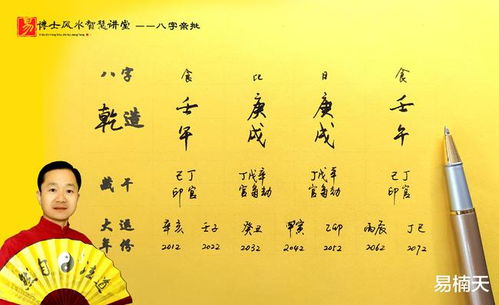 易 博士风水智慧讲堂 ——八字亲批
八字 食 比 日 食
乾造 壬午 庚戌 庚戌 壬午
藏干 己丁 丁戊辛 丁戊辛 己丁
印官 官枭劫 官枭劫 印官
大运 辛亥 壬子 癸丑 甲寅 乙卯 丙辰 丁巳
年份 2012 2022 2032 2042 2052 2062 2072
然自法道
易楠天